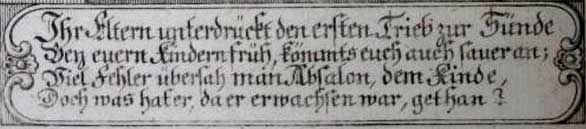 Ihr Eltern unterdrückt den ersten Trieb zur Sünde
Bey euern Kindern früh, kömmts euch auch sauer an;
Viel Fehler übersah man Absalon, dem Kinde,
Doch was hat er, da er erwachsen war, gethan?